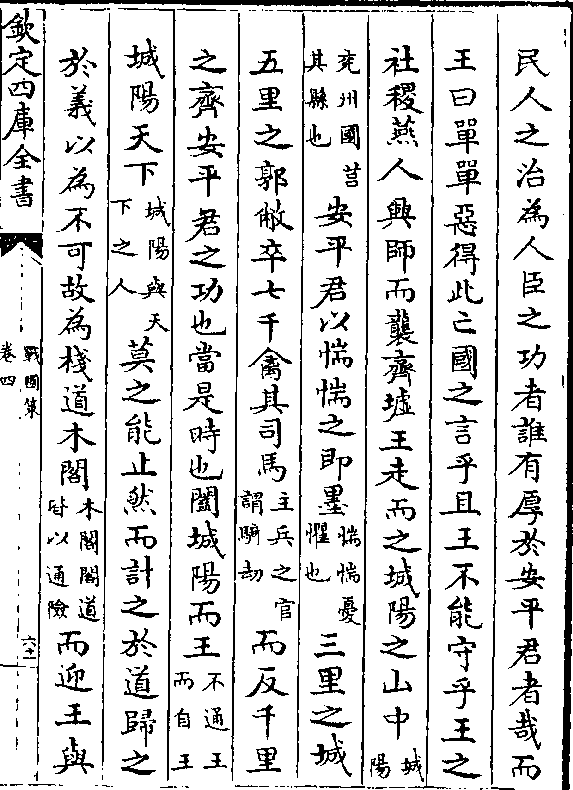 民人之治為人臣之功者誰有厚於安平君者哉而
王曰單單惡得此亡國之言乎且王不能守乎王之
社稷燕人興師而襲齊墟王走而之城陽之山中城陽
兖州國莒其縣也安平君以惴惴之即墨惴惴憂懼也三里之城
五里之郭敝卒七千禽其司馬主兵之官謂騎劫而反千里
之齊安平君之功也當是時也闔城陽而王不通王而自王
城陽天下城陽與天下之人莫之能止然而計之於道歸之
於義以為不可故為棧道木閣木閣閣道皆以通險而迎王與
欽定四庫全書
戰國策
卷四
六十